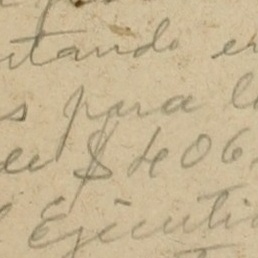 utando en
s para l
de $ 406.
l Ejecuti